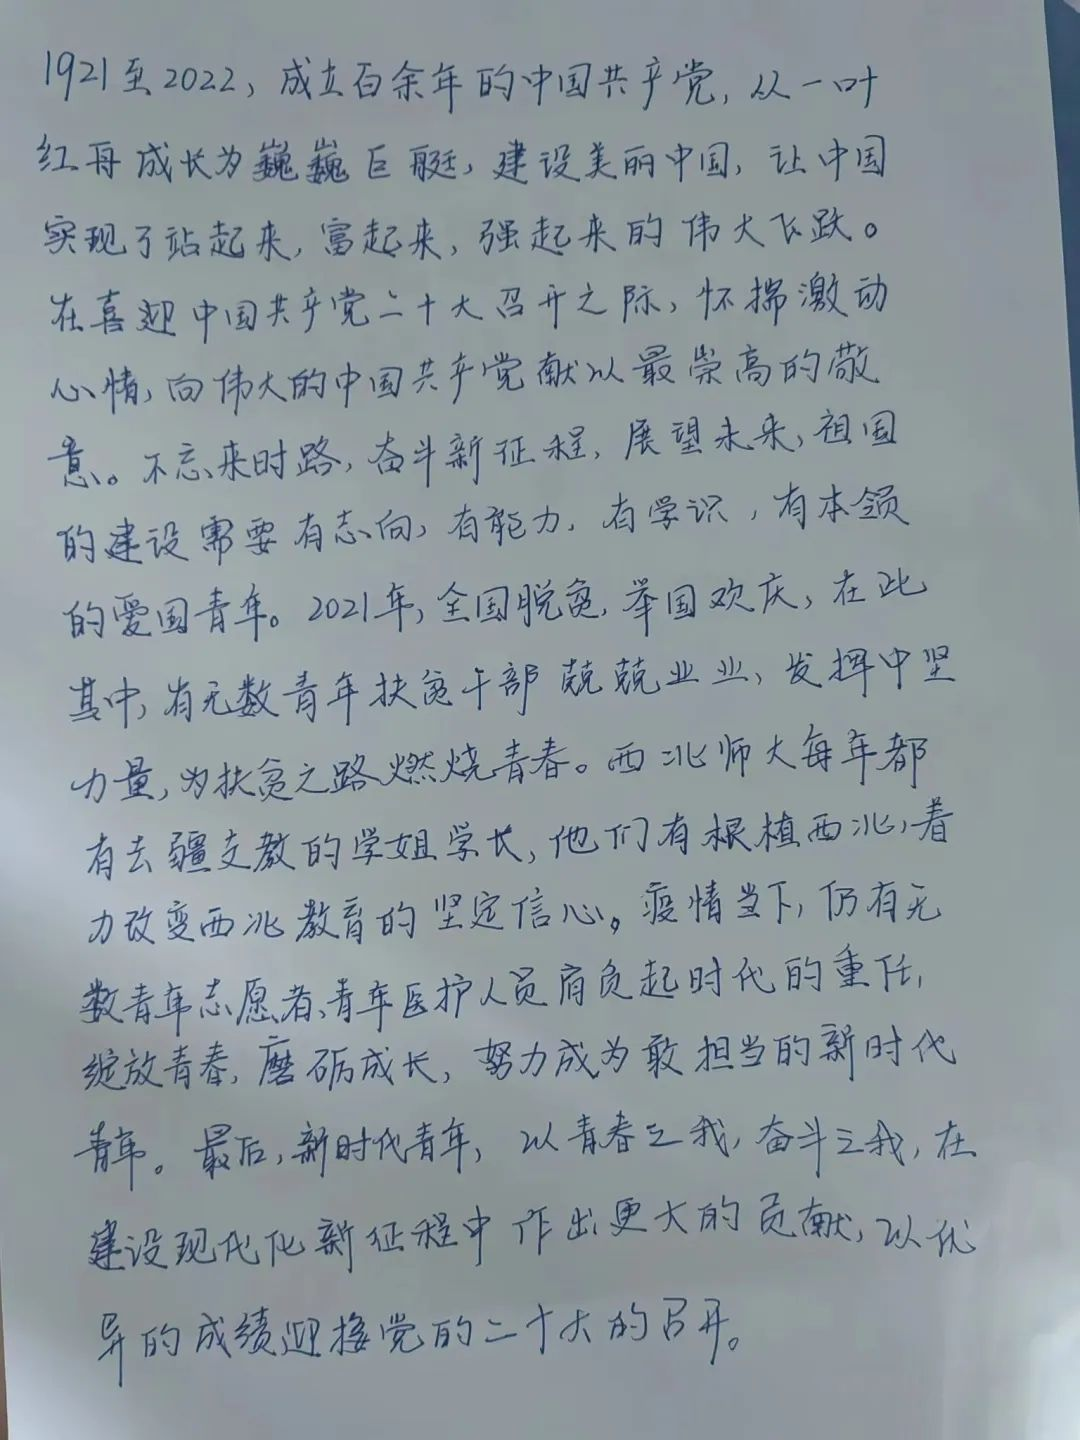 1921至2022，成立百余年的中国共产党，从一叶
红舟成长为巍巍巨艇，建设美丽中国，让中国
实现了站起来，富起来，强起来的伟大飞跃。
在喜迎中国共产党二十大召开之际，怀揣激动
心情，向伟大的中国共产党献以最崇高的敬
意。不忘来时路，奋斗新征程，展望未来，祖国
的建设需要有志向，有能力，有学识，有本领
的爱国青年。2021年，全国脱贫，举国欢庆，在此
其中，有无数青年扶贫干部兢兢业业，发挥中坚
力量，为扶贫之路燃烧青春。西北师大每年都
有去疆支教的学姐学长，他们有根植西北，着
力改变西北教育的坚定信心。疫情当下，仍有无
数青年志愿者、青年医护人员肩负起时代的重任，
绽放青春，磨砺成长，努力成为敢担当的新时代
青年。最后，新时代青年，以青春之我，奋斗之我，在
建设现代化新征程中作出更大的贡献，以优
异的成绩迎接党的二十大的召开。